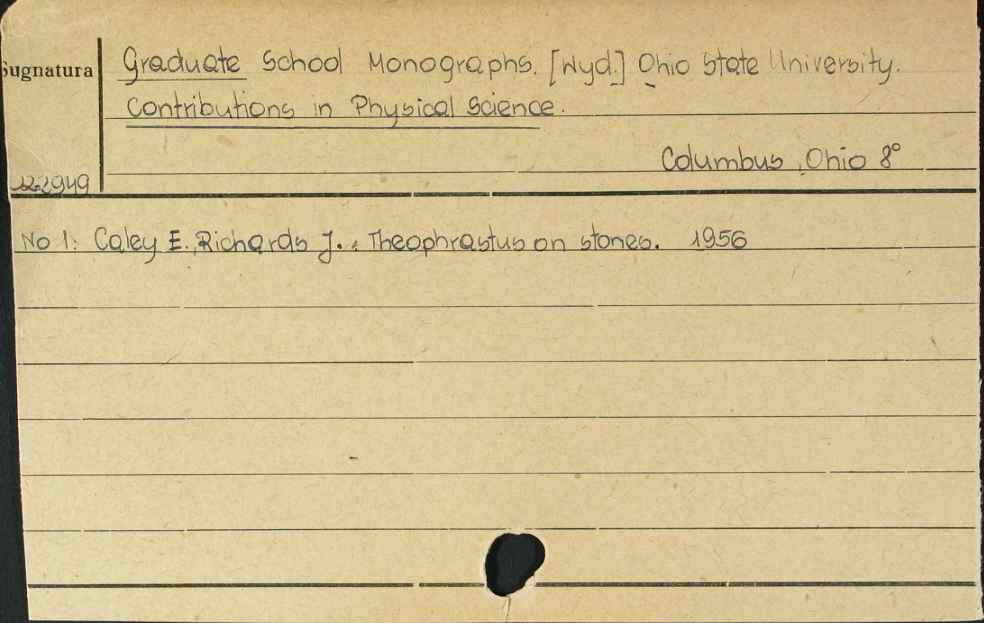 Graduate School Monographs. [Wyd.] Ohio State University.
Sygnatura
Contributions in Physical Science.
Columbus, Ohio 8°
No 1: Caley E., Richards J.: Theophrastus on stones. 1956